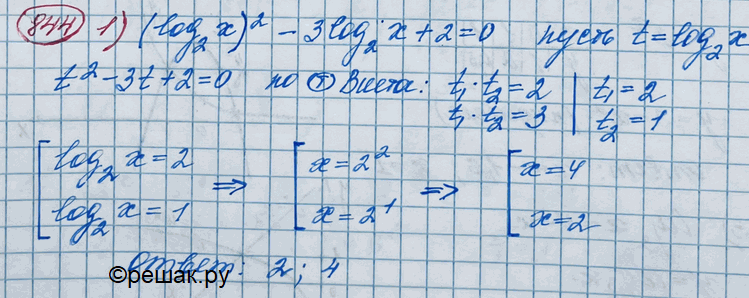 844 1) (log₂ x)² - 3log₂ x + 2 = 0 пусть t = log₂ x
t² - 3t + 2 = 0 по Ⓣ Виета: t₁ · t₂ = 2 | t₁ = 2
t₁ · t₂ = 3 | t₂ = 1
[ log₂ x = 2 => [ x = 2² => [ x = 4
log₂ x = 1 x = 2¹ x = 2
Ответ: 2; 4
©решак.ру